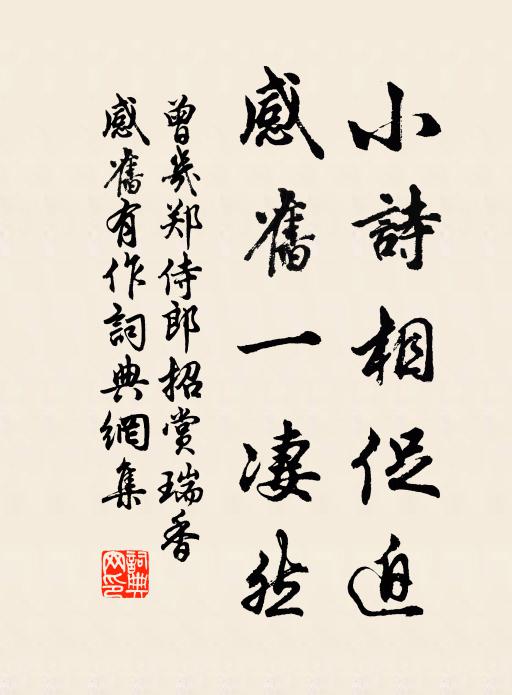 小詩相促迫
感舊一凄然
曾幾郑侍郎招賞瑞香
感舊有作詞典網集
詞典
网印